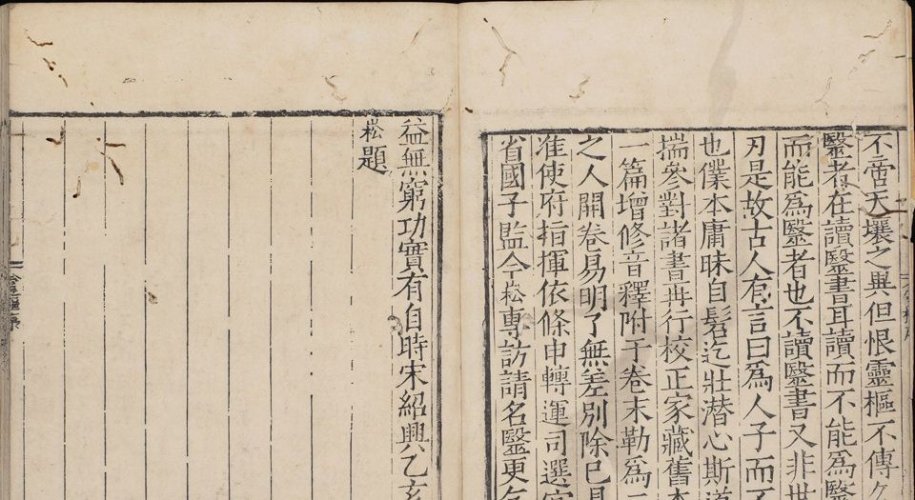 不啻天壤之異但恨靈樞不傳久
醫者在讀醫書耳讀而不能為醫
而能為醫者也不讀醫書又非世
刃是故古人有言曰為人子而
也僕本庸昧自髫迄壯潜心斯道
揣參對諸書再行校正家藏舊本
一篇增修音釋附于卷末勒為
之人開卷易明了無差別除已具
准使府指揮依條申轉運司選官
省國子監今崧專訪請名醫更乞
益無窮功實有自時宋紹興乙亥
崧題